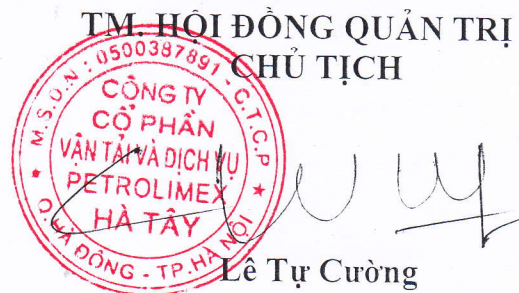 TM. HỘI ĐỒNG QUẢN TRỊ
CHỦ TỊCH
M.S.D.N: 0500387891 - C.T.C.P
CÔNG TY
CỔ PHẦN
VẬN TẢI VÀ DỊCH VỤ
PETROLIMEX
HÀ TÂY
Q.HÀ ĐÔNG - TP.HÀ NỘI
Lê Tự Cường